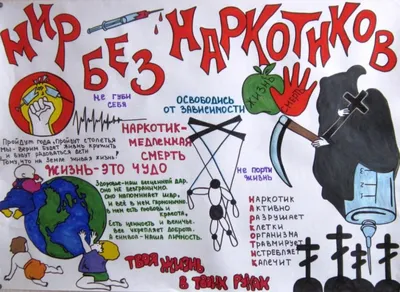 МИР БЕЗ НАРКОТИКОВ
НЕ ГУБИ
СЕБЯ
ОСВОБОДИСЬ
ОТ ЗАВИСИМОСТИ
ЖИЗНЬ
СМЕРТЬ
НАРКОТИК-
МЕДЛЕННАЯ
СМЕРТЬ
Пройдут года, пройдут столетья
Мы верим будет жизнь кружить
и будут радоваться дети
Тому, что на Земле
жизнь!
ЖИЗНЬ-ЭТО ЧУДО
Здоровье-наш бесценный дар.
Оно не безгранично.
Оно напоминает шар,
И всё в нём гармонично.
В нём есть любовь и
красота,
Есть ценность и величье.
Век укрепляет доброта,
а символ-наша личность.
НЕ ПОРТИ
ЖИЗНЬ
НАРКОТИК
АКТИВНО
РАЗРУШАЕТ
КЛЕТКИ
ОРГАНИЗМА
ТРАВМИРУЕТ
ИСТРЕБЛЯЕТ
КАЛЕЧИТ
ТВОЯ ЖИЗНЬ
В ТВОИХ РУКАХ